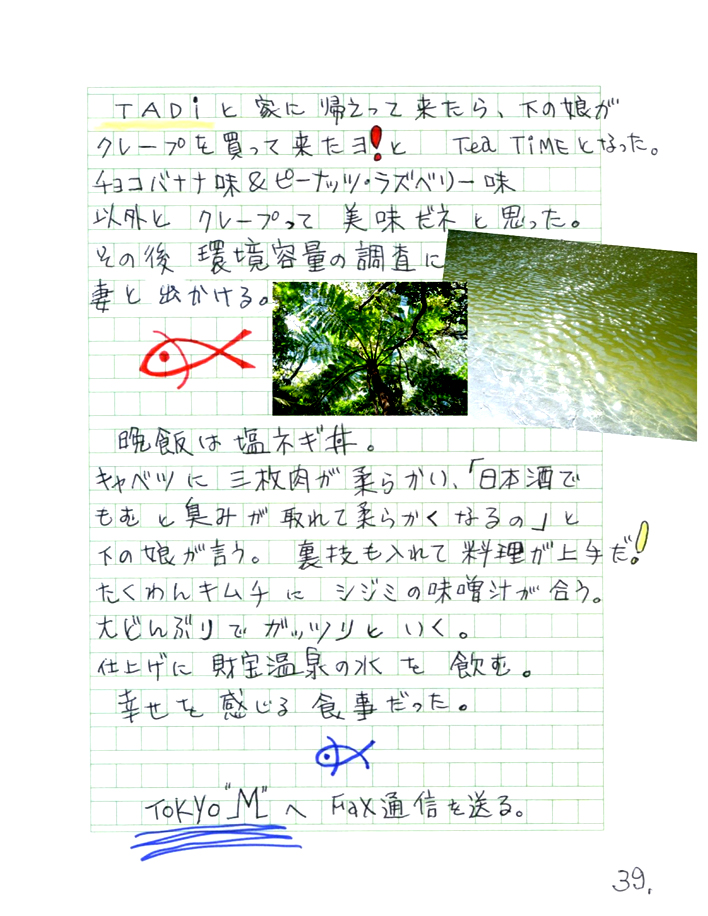 TADiと家に帰えって来たら、下の娘が
クレープを買って来たヨ!と Tea TiMEとなった。
チョコバナナ味&ピーナッツ・ラズベリー味
以外と クレープって 美味だネと思った。
その後 環境容量の調査に
妻と出かける。
晩飯は塩ネギ丼。
キャベツに 三枚肉が柔らかい、「日本酒で
もむと臭みが取れて柔らかくなるの」と
下の娘が言う。 裏技も入れて料理が上手だ!
たくわんキムチに シジミの味噌汁が合う。
大どんぶりでガッツリといく。
仕上げに 財宝温泉の水を飲む。
幸せを感じる食事だった。
ToKYo "M" へ FaX通信を送る。
39.